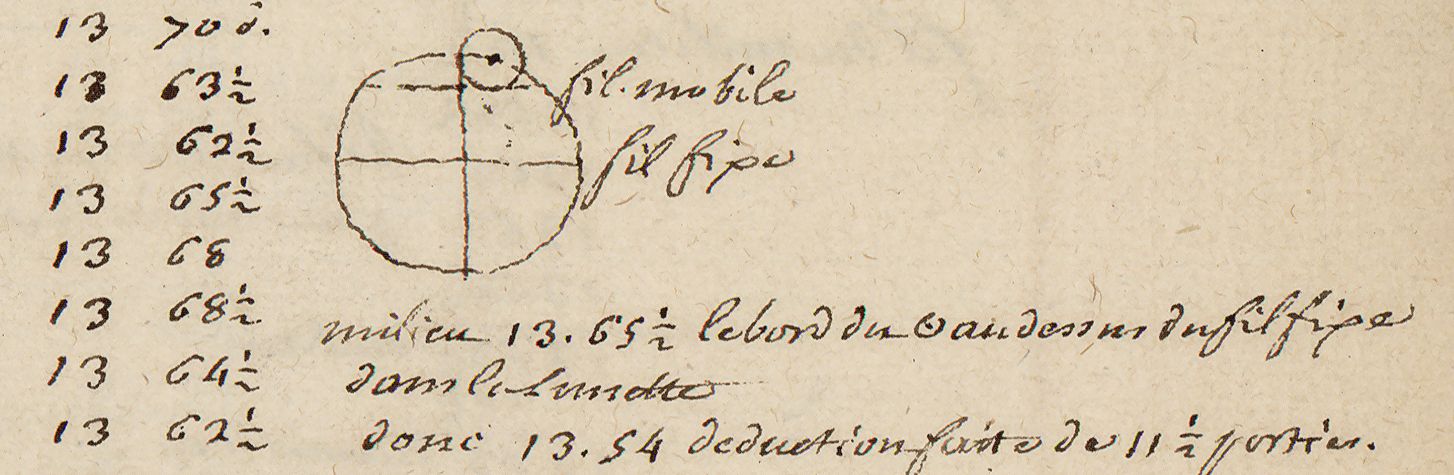 13 70 d.
13 63 1/2
fil mobile
13 62 1/2
fil fixe
13 65 1/2
13 68
13 68 1/2
milieu 13. 65 1/2 le bord du ⊙ au dessus du fil fixe
13 64 1/2
dans la Lunette
13 62 1/2
donc 13. 54 deduction faitte de 11 1/2 parties.